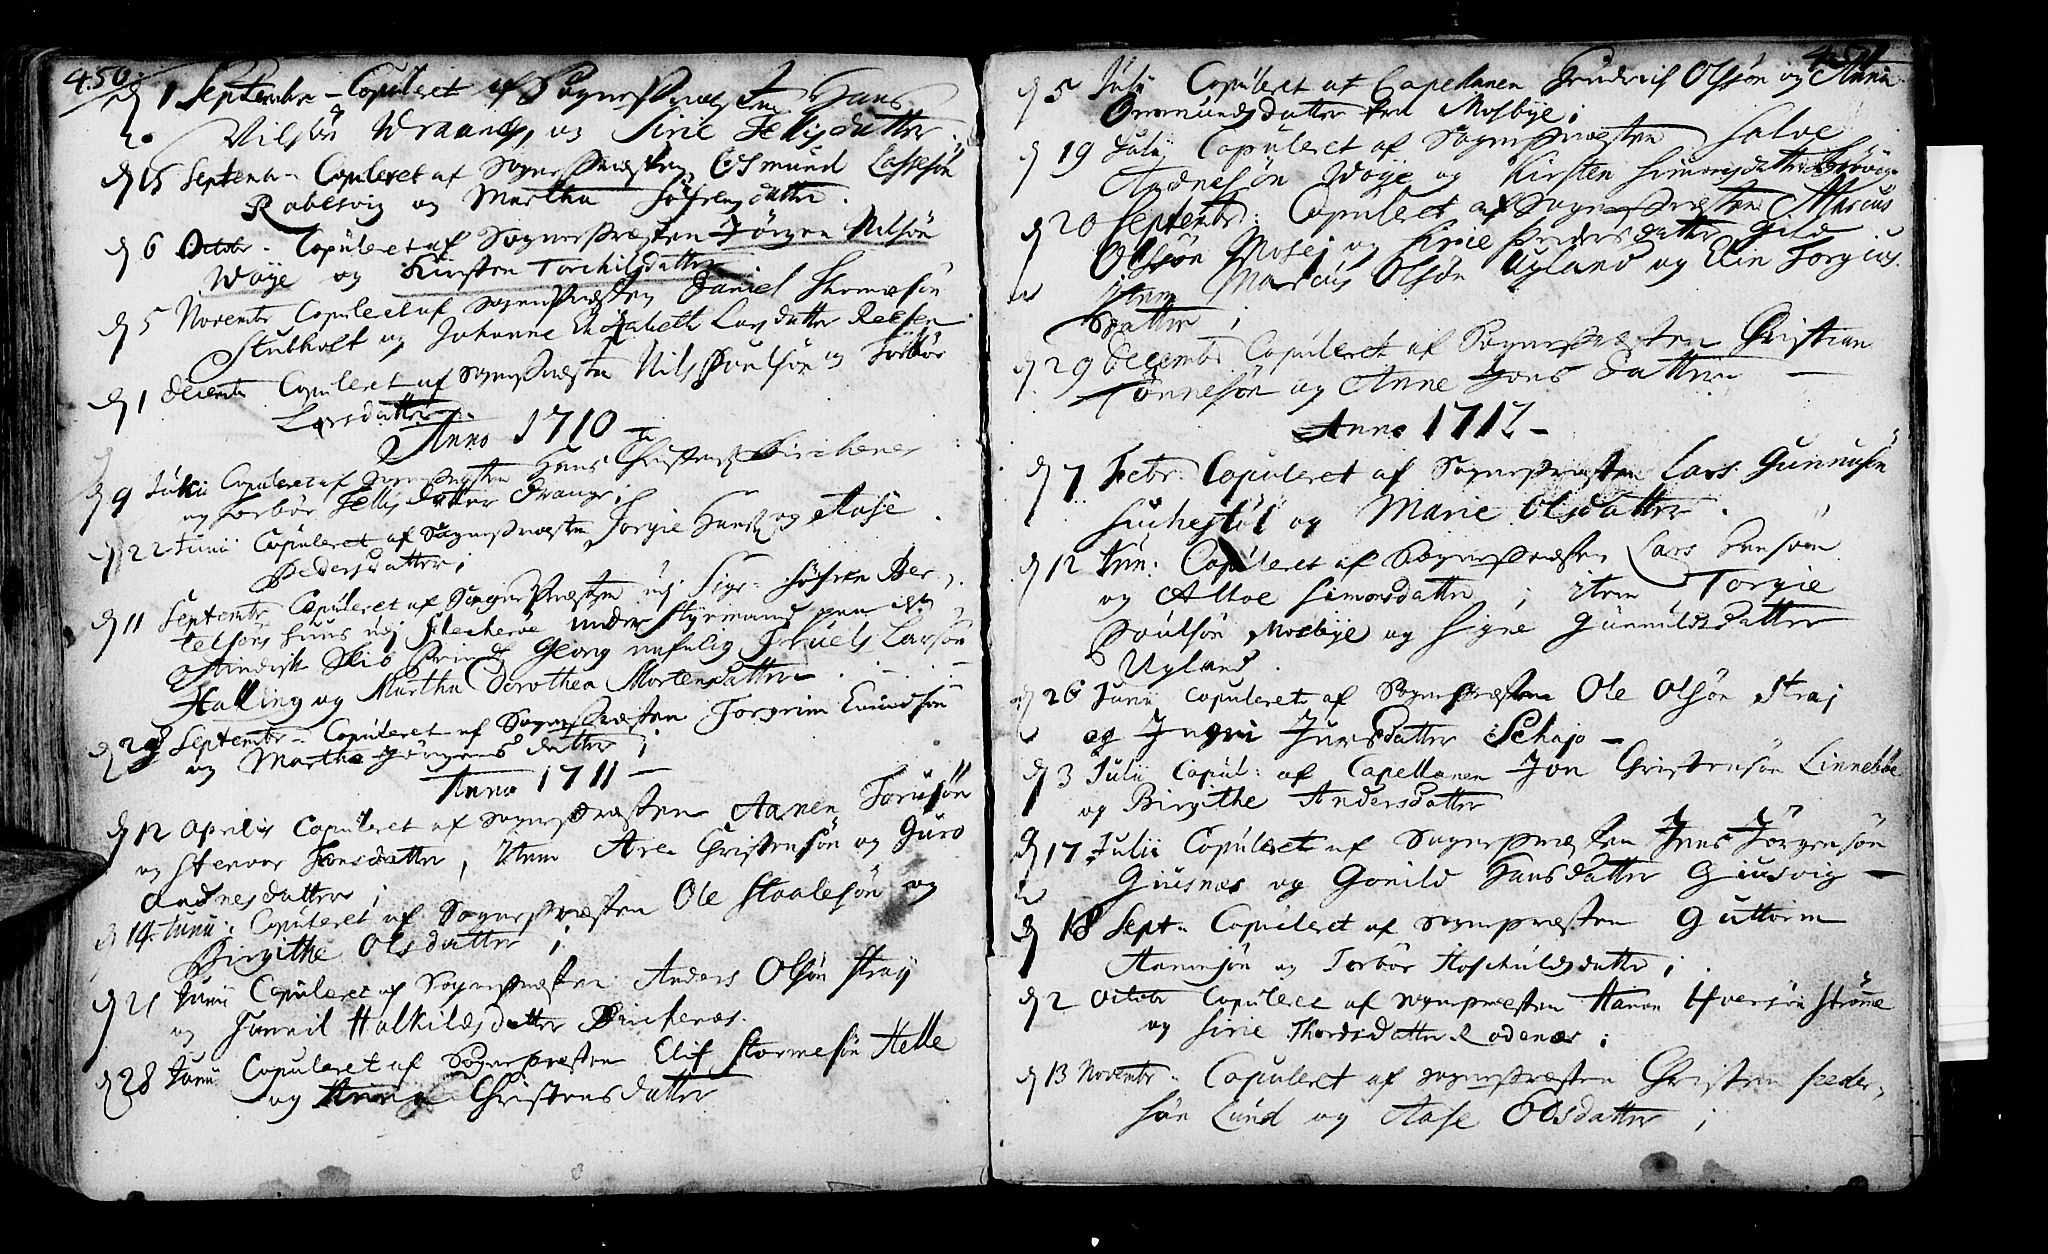 450.
d 1 Septembr. Copuleret af Sognepræsten Hans
Nilsøn Wraang, og Sirie Jellisdatter.
d 15 Septembr. Copuleret af Sognepræsten Osmund Lassesøn
Rabesvig og Martha Söfrensdatter.
d 6 Octobr. Copuleret af Sognepræsten Jörgen Nilsön
Woye og Kirsten Torchilsdatter
d 5 Novembr Copuleret af Sognepræsten Daniel Thomæsön
Stubholt og Johanne Elisabeth Larsdatter
d 1 decembr Copuleret af Sognepræsten Nils Poulsön og Torbör
Larsdatter.
Anno 1710
d 9 Junii Copuleret af Sognepræsten Hans Christens. Kirchenes
og Torbör Jellisdatter Drange;
d 22 Junii Copuleret af Sognepræsten Torgie Hans. og Aase
Pedersdatter;
d 11 Septembr Copuleret af Sognepræsten udj Sigr. Söfren Ber-
telsöns huus udj Flecheröe under Styrmand paa
Skib Printz Georg nafnlig Truels Larsön
Halling og Martha Dorothea Mortensdatter
d 29 Septembr. Copuleret af Sognepræsten Torgrim Eeundsön
og Martha Jörgensdatter;
Anno 1711
d 12 Aprilis Copuleret af Sognepræsten Aanen Torusön
og Stervor Hansdatter, Item Are Christensön og Guro
Andnesdatter;
d 14 Junii: Copuleret af Sognepræsten Ole Staalesön og
Birgithe Olsdatter;
d 21 Junii Copuleret af Sognepræsten Anders Olsön Straÿ
og Gunnil Halkilsdatter Kirchenæs.
d 28 Junii Copuleret af Sognepræsten Elif Stormesön Helle
og Anna Christensdatter
451
d 5 Julii Copuleret af Capellanen Hendrich Olssön og Anna
Ormundsdatter fra Mosbÿe;
d 19 Julij Copuleret af Sognepræsten Salve
Andnesön Woÿe og Kirsten Simonsdatter
d 20 Septembr: Copuleret af Sognepræsten Marcus
Olssön Mosej og Sirie Pedersdatter Gild
Item Marcus Olsön Ugland og Elin Torgius
datter;
d 29 Decembr Copuleret af Sognepræsten Christian
Tönnesön og Anne Jonsdatter
Anno 1712
d 7 Febr. Copuleret af Sognepræsten Lars Gunnusön
Suchestöl og Marie Olsdatter.
d 12 Jun: Copuleret af Sognepræsten Lars Jensøn
og Altve Simonsdatter; item Torgie
Poulsön Mosbÿe og Signe Gunnuldsdatter
Ugland.
d 26 Junii Copuleret af Sognepræsten Ole Olsön Straj
og Ingri Jensdatter Schajo
d 3 Julii Copul: af Capellanen Jon Christensön Linnebøe
og Birgithe Andersdatter
d 17 Julii Copuleret af Sognepræsten Jens Jörgensön
Giusnæs og Gonild Hansdatter Giusvig
d 18 Sept. Copuleret af Sognepræsten Guttorm
Aanensön og Torbör Aaschuldsdatter;
d 2 Octobr Copuleret af Sognepræsten Aanen Ifversön Strömme
og Sirie Thordsdatter Rodenæs;
d 13 Novembr. Copuleret af Sognepræsten Christen Peder-
sön Lund og Aase Olsdatter;